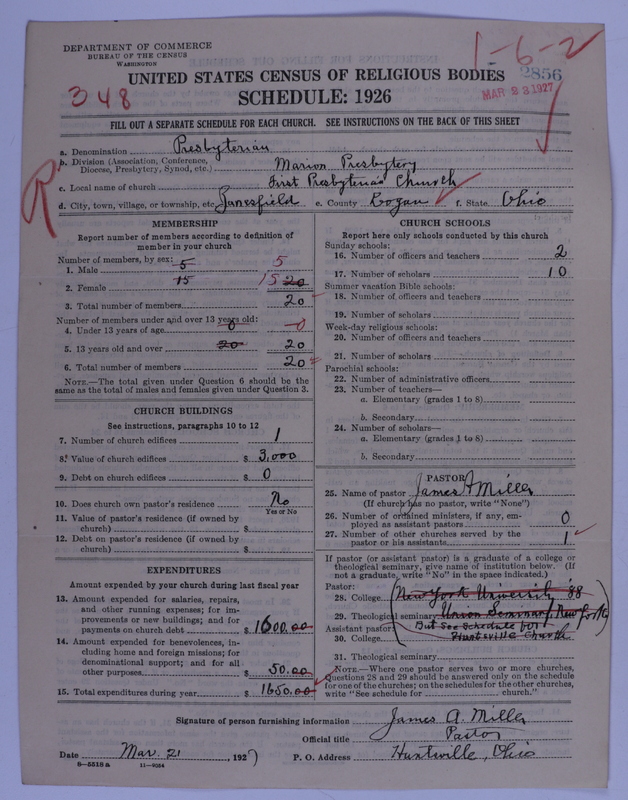 DEPARTMENT OF COMMERCE
BUREAU OF THE CENSUS
WASHINGTON
1-6-2
2856
MAR 23 1927
348
UNITED STATES CENSUS OF RELIGIOUS BODIES
SCHEDULE: 1926
FILL OUT A SEPARATE SCHEDULE FOR EACH CHURCH. SEE INSTRUCTIONS ON THE BACK OF THIS SHEET
R
a. Denomination Presbyterian
b. Division (Association, Conference, Diocese, Presbytery, Synod, etc.) Marion Presbytery
c. Local name of church First Presbyterian Church
d. City, town, village, or township, etc. Zanesfield e. County Logan f. State Ohio
MEMBERSHIP
Report number of members according to definition of
member in your church
Number of members, by sex:
1. Male 5 5
2. Female 15 15 20
3. Total number of members 20
Number of members under and over 13 years old:
4. Under 13 years of age 0 0
5. 13 years old and over 20 20
6. Total number of members 20
NOTE.—The total given under Question 6 should be the
same as the total of males and females given under Question 3.
CHURCH BUILDINGS
See instructions, paragraphs 10 to 12
7. Number of church edifices 1
8. Value of church edifices $ 3,000
9. Debt on church edifices $ 0
10. Does church own pastor's residence No
Yes or No
11. Value of pastor's residence (if owned by
church) $
12. Debt on pastor's residence (if owned by
church) $
EXPENDITURES
Amount expended by your church during last fiscal year
13. Amount expended for salaries, repairs,
and other running expenses; for im-
provements or new buildings; and for
payments on church debt $ 1600.00
14. Amount expended for benevolences, in-
cluding home and foreign missions; for
denominational support; and for all
other purposes $ 50.00
15. Total expenditures during year $ 1650.00
CHURCH SCHOOLS
Report here only schools conducted by this church
Sunday schools:
16. Number of officers and teachers 2
17. Number of scholars 10
Summer vacation Bible schools:
18. Number of officers and teachers
19. Number of scholars
Week-day religious schools:
20. Number of officers and teachers
21. Number of scholars
Parochial schools:
22. Number of administrative officers
23. Number of teachers—
a. Elementary (grades 1 to 8)
b. Secondary
24. Number of scholars—
a. Elementary (grades 1 to 8)
b. Secondary
PASTOR
25. Name of pastor James A Miller
(If church has no pastor, write "None")
26. Number of ordained ministers, if any, em-
ployed as assistant pastors 0
27. Number of other churches served by the
pastor or his assistants 1
If pastor (or assistant pastor) is a graduate of a college or
theological seminary, give name of institution below. (If
not a graduate, write "No" in the space indicated.)
Pastor:
28. College New York University '88
29. Theological seminary Union Seminary, New York
Assistant pastor: But see Schedule for
30. College Huntsville Church
31. Theological seminary
NOTE.—Where one pastor serves two or more churches,
Questions 28 and 29 should be answered only on the schedule
for one of the churches; on the schedules for the other churches,
write "See schedule for church."
Signature of person furnishing information James A. Miller
Official title Pastor
Date Mar. 21, 1927 P. O. Address Huntsville, Ohio
8—5518a 11—9554